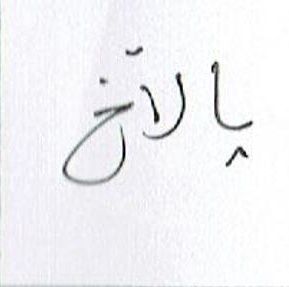 پالآخ